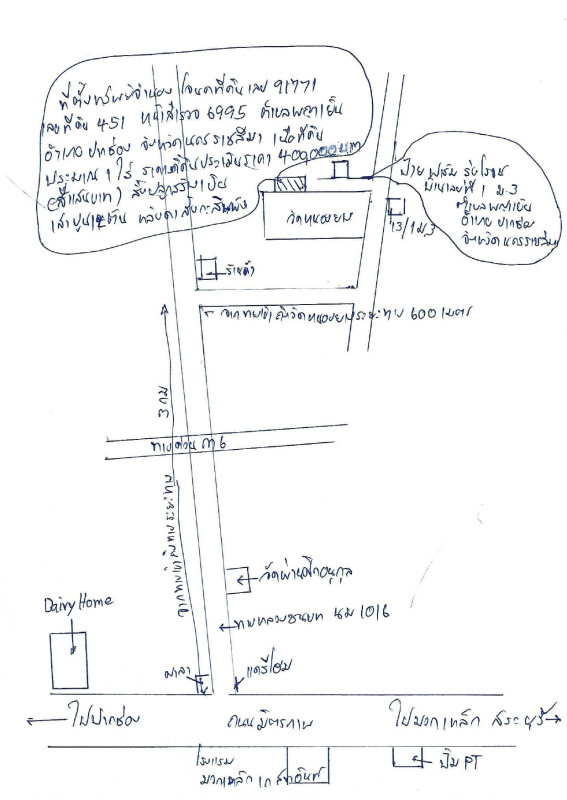 ที่ตั้งทรัพย์จำนอง โฉนดที่ดินเลข 91771
เลขที่ดิน 451 หน้าสำรวจ 6995 ตำบลพญาเย็น
อำเภอ ปากช่อง จังหวัดนครราชสีมา เนื้อที่ดิน
ประมาณ 1 ไร่ ราคาที่ดินประเมินราคา 400,000บาท
(สี่แสนบาท) สิ่งปลูกสร้างเป็น
เสาปูน หลังคาสังกะสี
ป้าย ฟาร์ม
บ้านเลขที่ 1 ม.3
ตำบลพญาเย็น
อำเภอ ปากช่อง
จังหวัดนครราชสีมา
วัดหนองยาง
13/1 ม.3
ร้านค้า
จากทางเข้าถึงวัดหนองยางระยะทาง 600 เมตร
3 กม
ทางด่วน M6
จากทางเข้าถึงทางระยะทาง
วัดผ่านศึกอนุกูล
Dairy Home
ทางหลวงชนบท นม 1016
ศาลา
แดรี่โฮม
ไปปากช่อง
ถนนมิตรภาพ
ไปมวกเหล็ก สระบุรี
โรงแรม
มวกเหล็ก
ปั๊ม PT